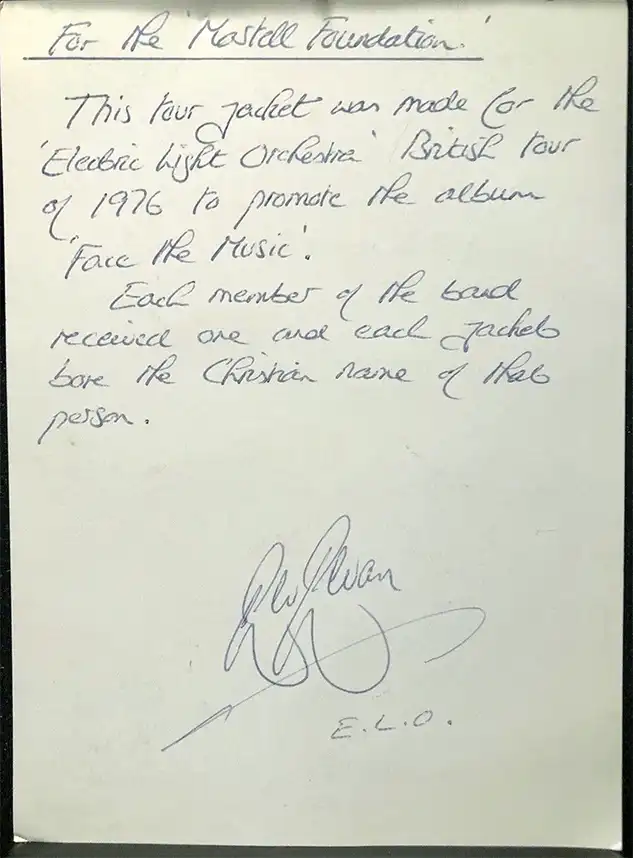 For the 'Mostell Foundation.'
This tour jacket was made for the
'Electric Light Orchestra' British tour
of 1976 to promote the album
'Face the Music'.
Each member of the band
received one and each jacket
bore the Christian name of that
person.
E.L.O.